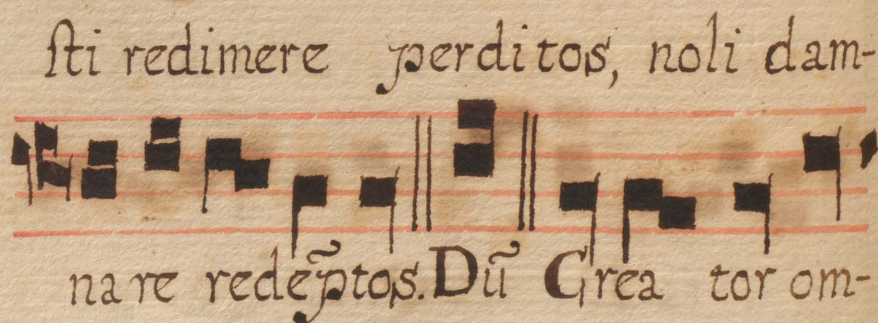 sti redimere perditos, noli dam-
nare redep̃tos. Dũ Creator om-